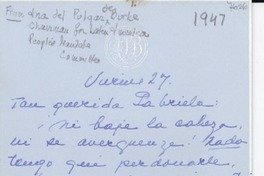 From Ana del Pulgar de Burke
Chairman for Latin America
People's Mandate
Committee
1947
Viernes 27.
Tan querida Gabriela:
¡Ni baje la cabeza,
ni se averguenze! Nada
tengo que perdonarle,